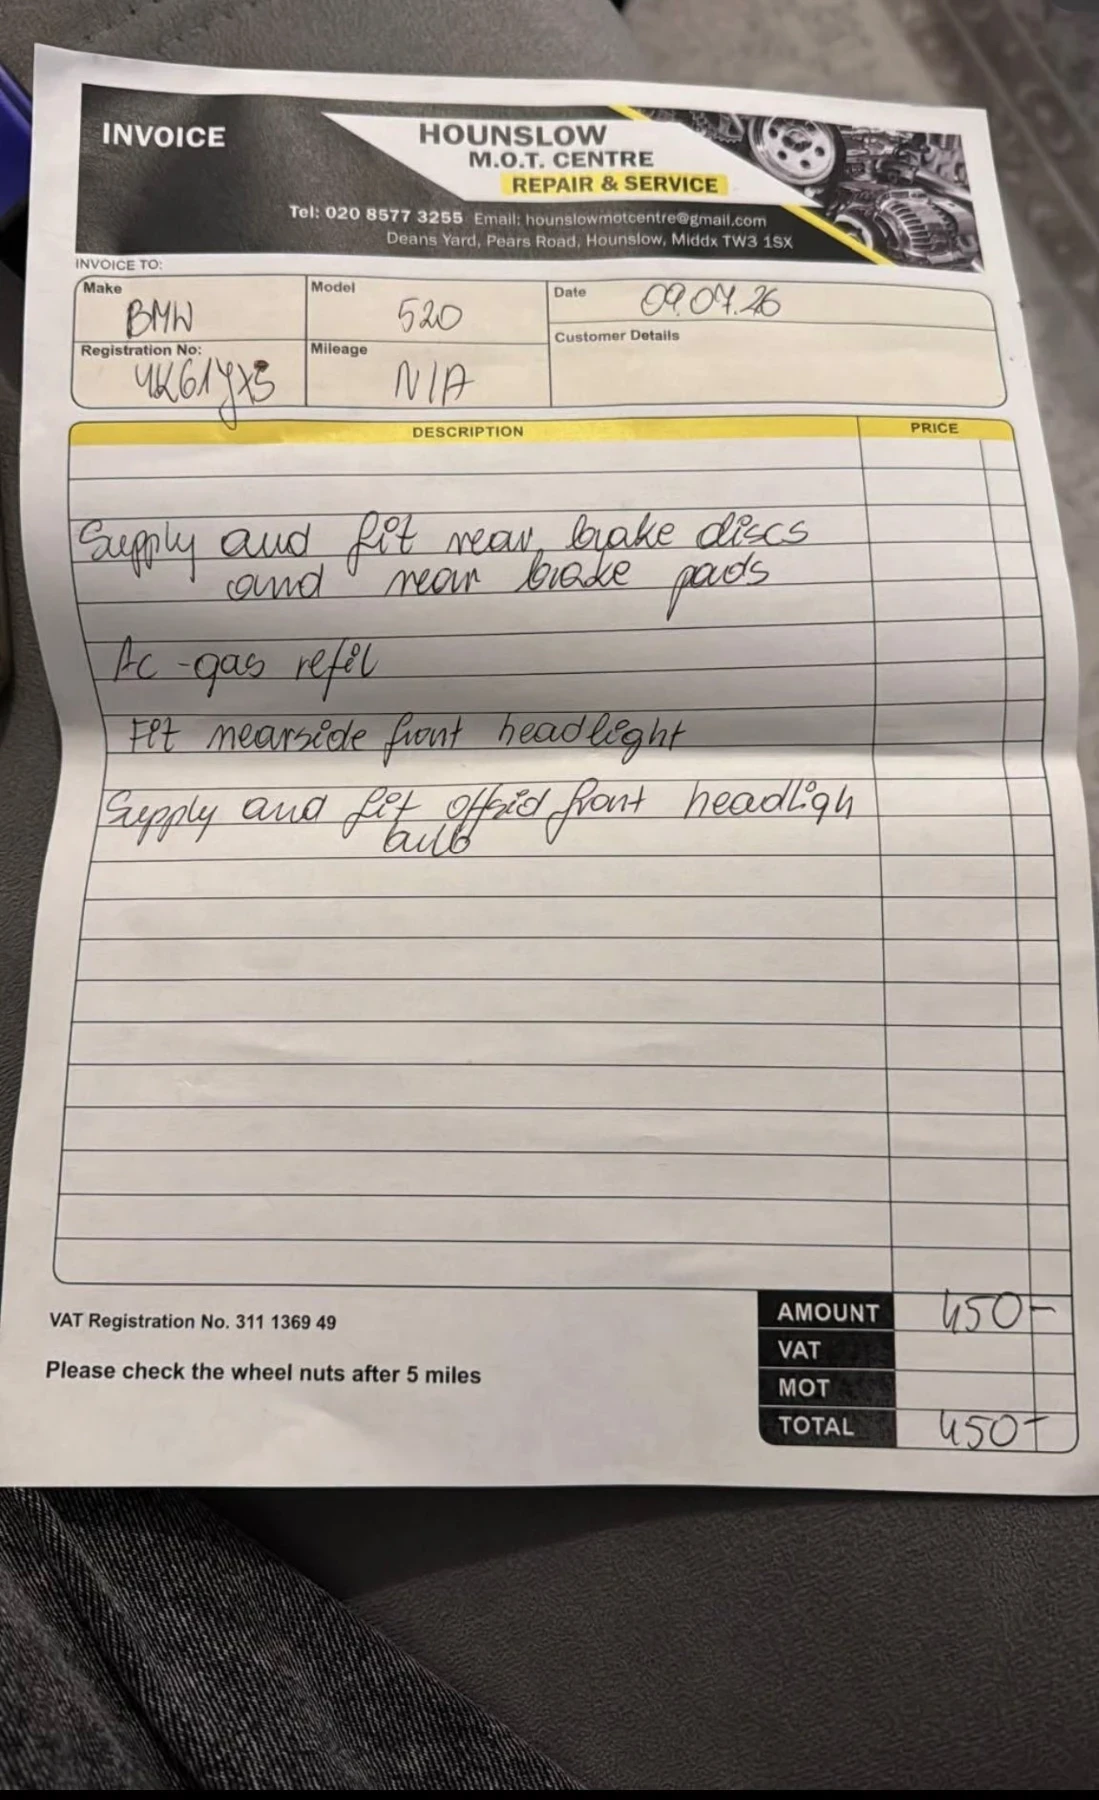 INVOICE
HOUNSLOW
M.O.T. CENTRE
REPAIR & SERVICE
Tel: 020 8577 3255 Email: hounslowmotcentre@gmail.com
Deans Yard, Pears Road, Hounslow, Middx TW3 1SX
INVOICE TO:
Make BMW
Model 520
Date 09.07.26
Registration No:
Mileage N/A
Customer Details
DESCRIPTION PRICE
Supply and fit rear brake discs
and rear brake pads
Ac-gas refil
Fit nearside front headlight
Supply and fit offsid front headligh
bulb
VAT Registration No. 311 1369 49
Please check the wheel nuts after 5 miles
AMOUNT 450-
VAT
MOT
TOTAL 450-